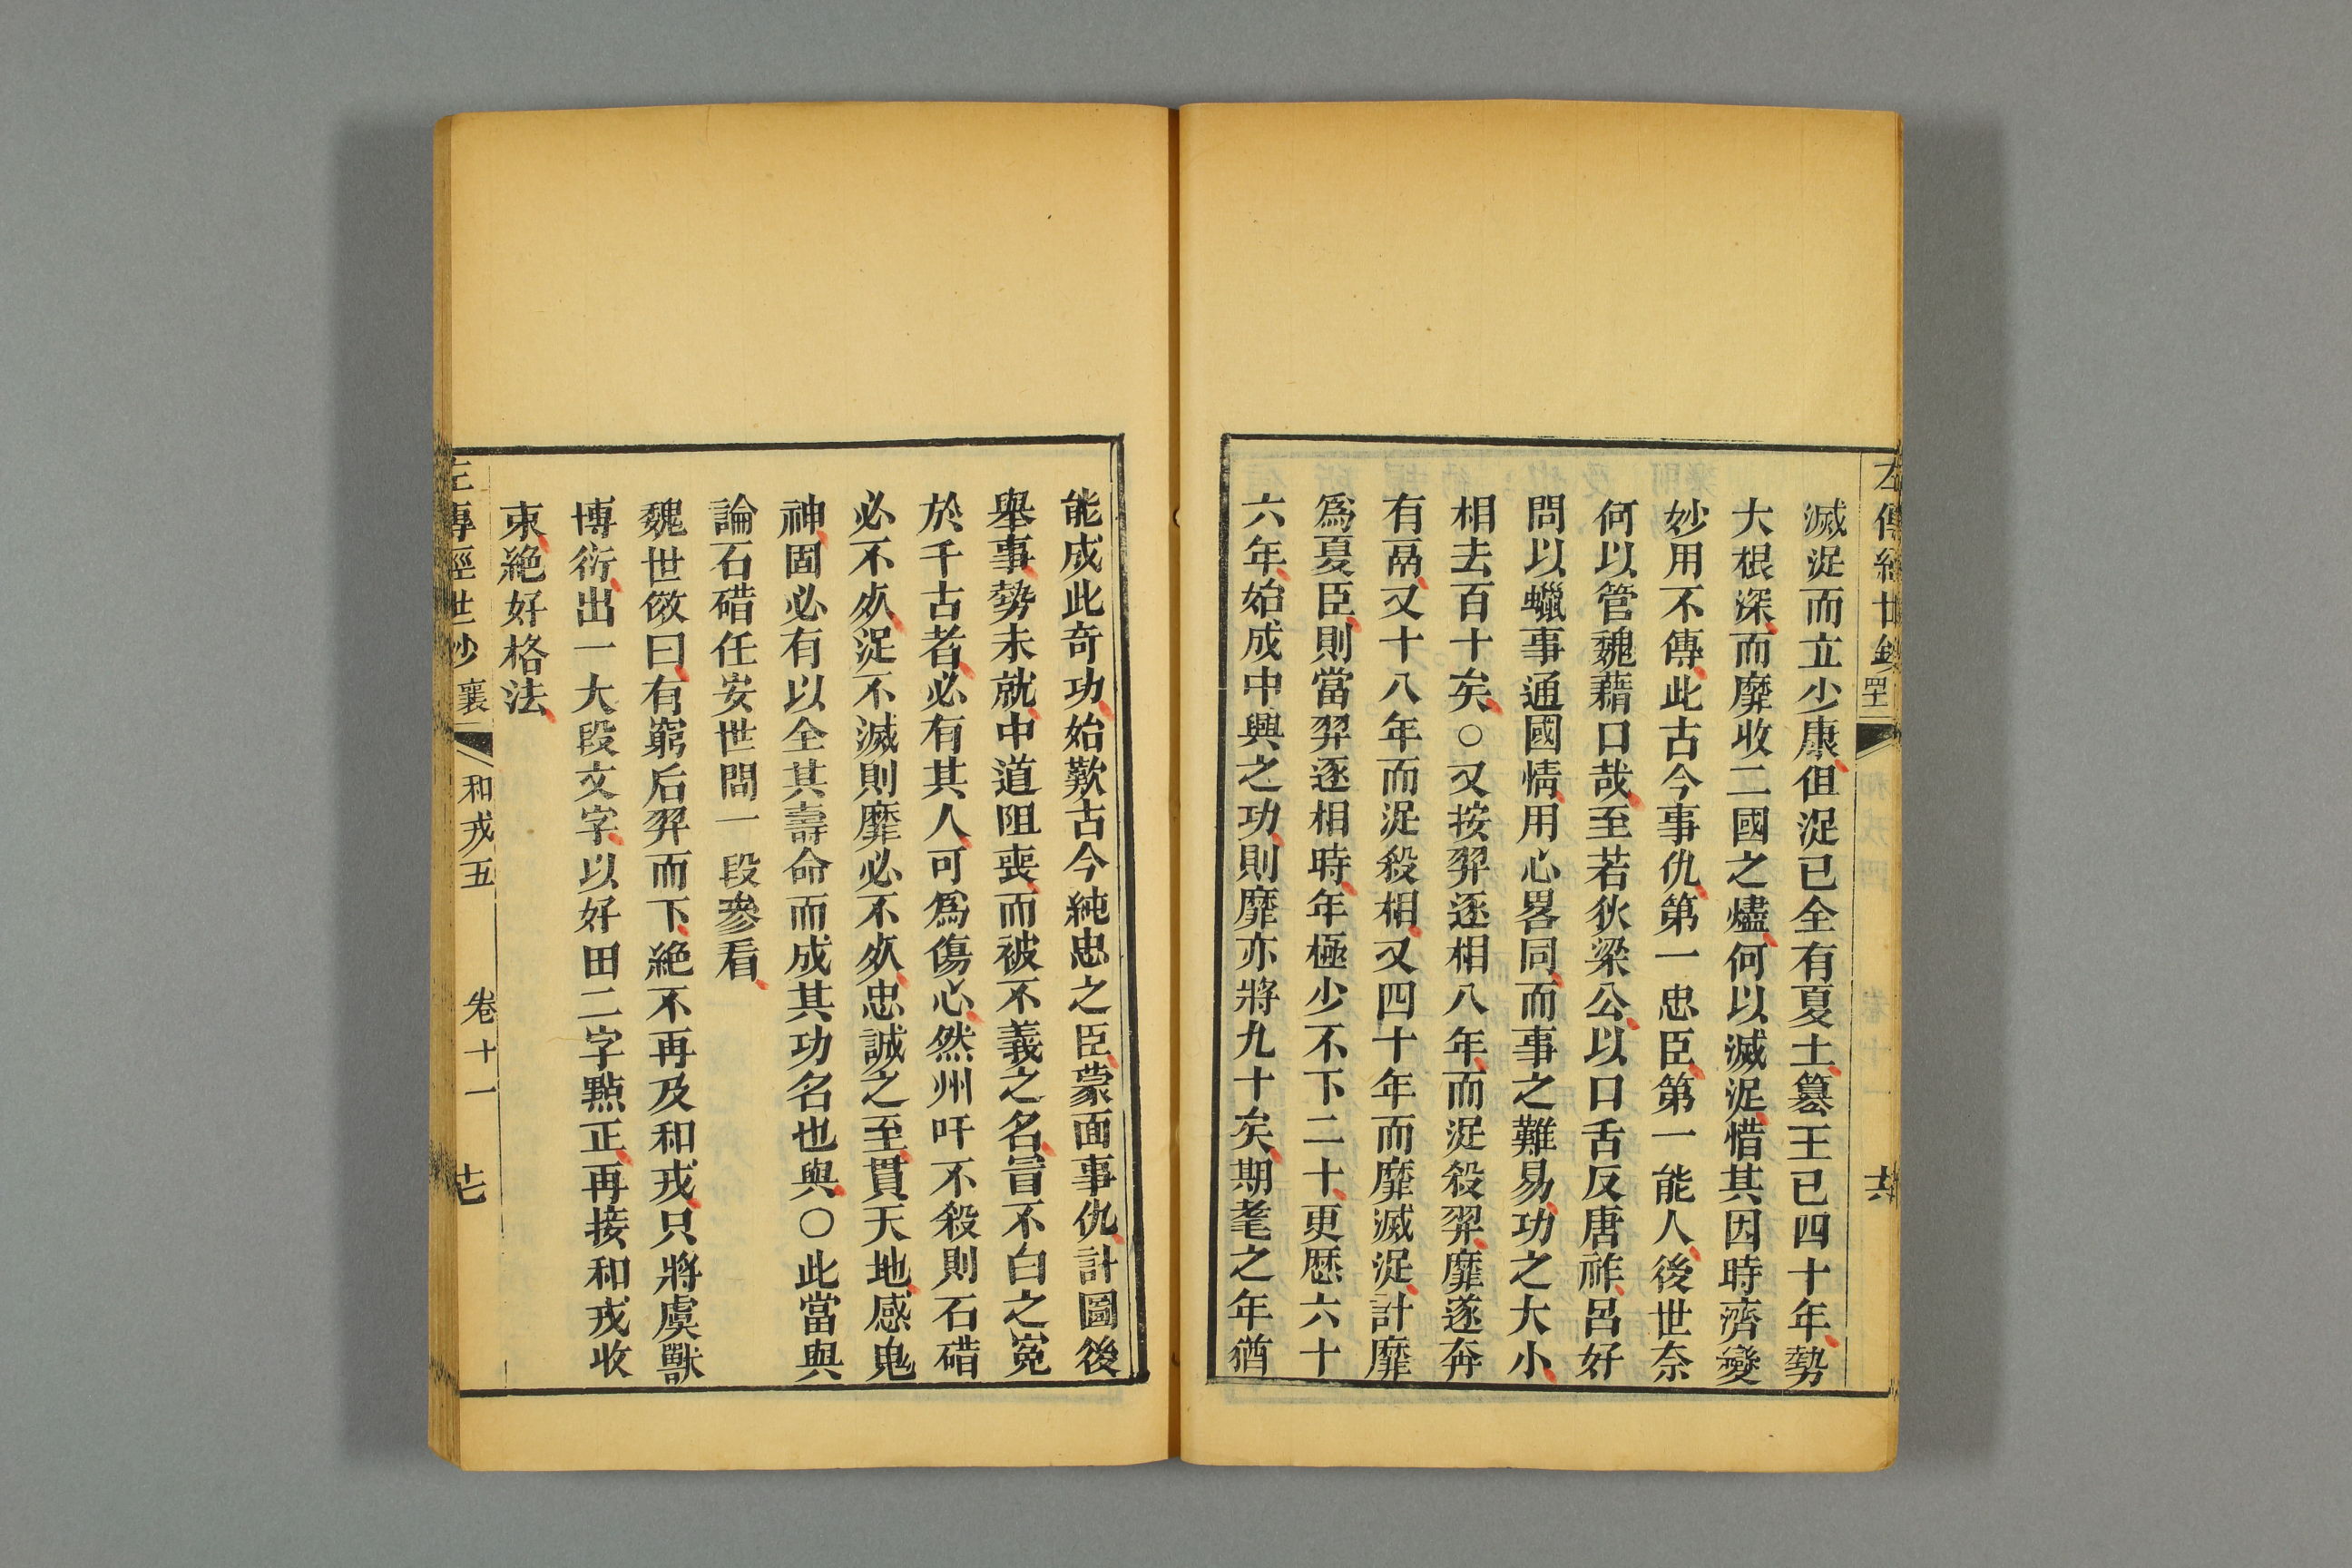 滅浞而立少康但浞已全有夏土簒王已四十年勢
大根深而靡收二國之燼何以滅浞惜其因時濟變
妙用不傳此古今事仇第一忠臣第一能人後世奈
何以管魏藉口哉至若狄梁公以口舌反唐祚呂好
問以蠟事通國情用心畧同而事之難易功之大小
相去百十矣○又按羿逐相八年而浞殺羿靡遂奔
有鬲又十八年而浞殺相又四十年而靡滅浞計靡
爲夏臣則當羿逐相時年極少不下二十更歷六十
六年始成中興之功則靡亦將九十矣期耄之年猶
能成此奇功始歎古今純忠之臣蒙面事仇計圖後
舉事勢未就中道阻喪而被不義之名冒不白之寃
於千古者必有其人可爲傷心然州吁不殺則石碏
必不死浞不滅則靡必不死忠誠之至貫天地感鬼
神固必有以全其壽命而成其功名也與○此當與
論石碏任安世問一段參看
魏世傚曰有窮后羿而下絶不再及和戎只將虞獸
博衍出一大段文字以好田二字點正再接和戎收
束絶好格法
左傳經世鈔 襄 和戎五 卷十一 十七